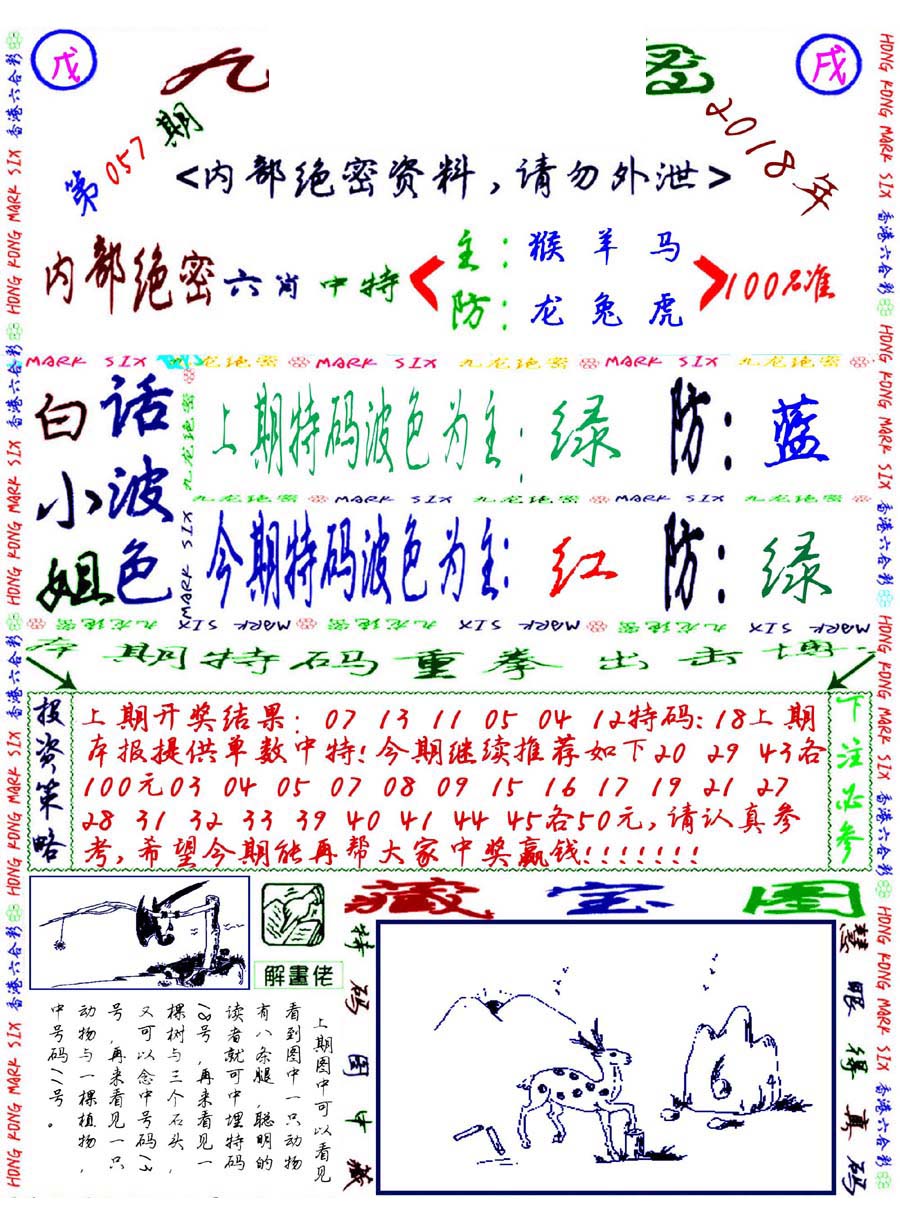 戊
九
密
戌
第057期
2018年
<内部绝密资料,请勿外泄>
内部绝密六肖中特
主:猴羊马
防:龙兔虎
100%准
MARK SIX 九龙绝密 MARK SIX 九龙绝密 MARK SIX 九龙绝密
白话
小波
姐色
上期特码波色为主:绿 防:蓝
九龙绝密 MARK SIX 九龙绝密 MARK SIX 九龙绝密
今期特码波色为主:红 防:绿
九龙绝密 MARK SIX 九龙绝密 MARK SIX 九龙绝密 MARK SIX
期特码重拳出击
投资策略
上期开奖结果: 07 13 11 05 04 12特码:18上期
本报提供单数中特!今期继续推荐如下20 29 43各
100元03 04 05 07 08 09 15 16 17 19 21 27
28 31 32 33 39 40 41 44 45各50元,请认真参
考,希望今期能再帮大家中奖赢钱!!!!!!!
下注必参
解畫佬
藏宝图
特码图中藏
慧眼得真码
上期图中可以看见
看到图中一只动物
有八条腿,聪明的
读者就可中埋特码
18号,再来看见一
棵树与三个石头,
又可以念中号码13
号,再来看见一只
动物与一棵植物,
中号码11号。
HONG KONG MARK SIX 香港六合彩
HONG KONG MARK SIX 香港六合彩